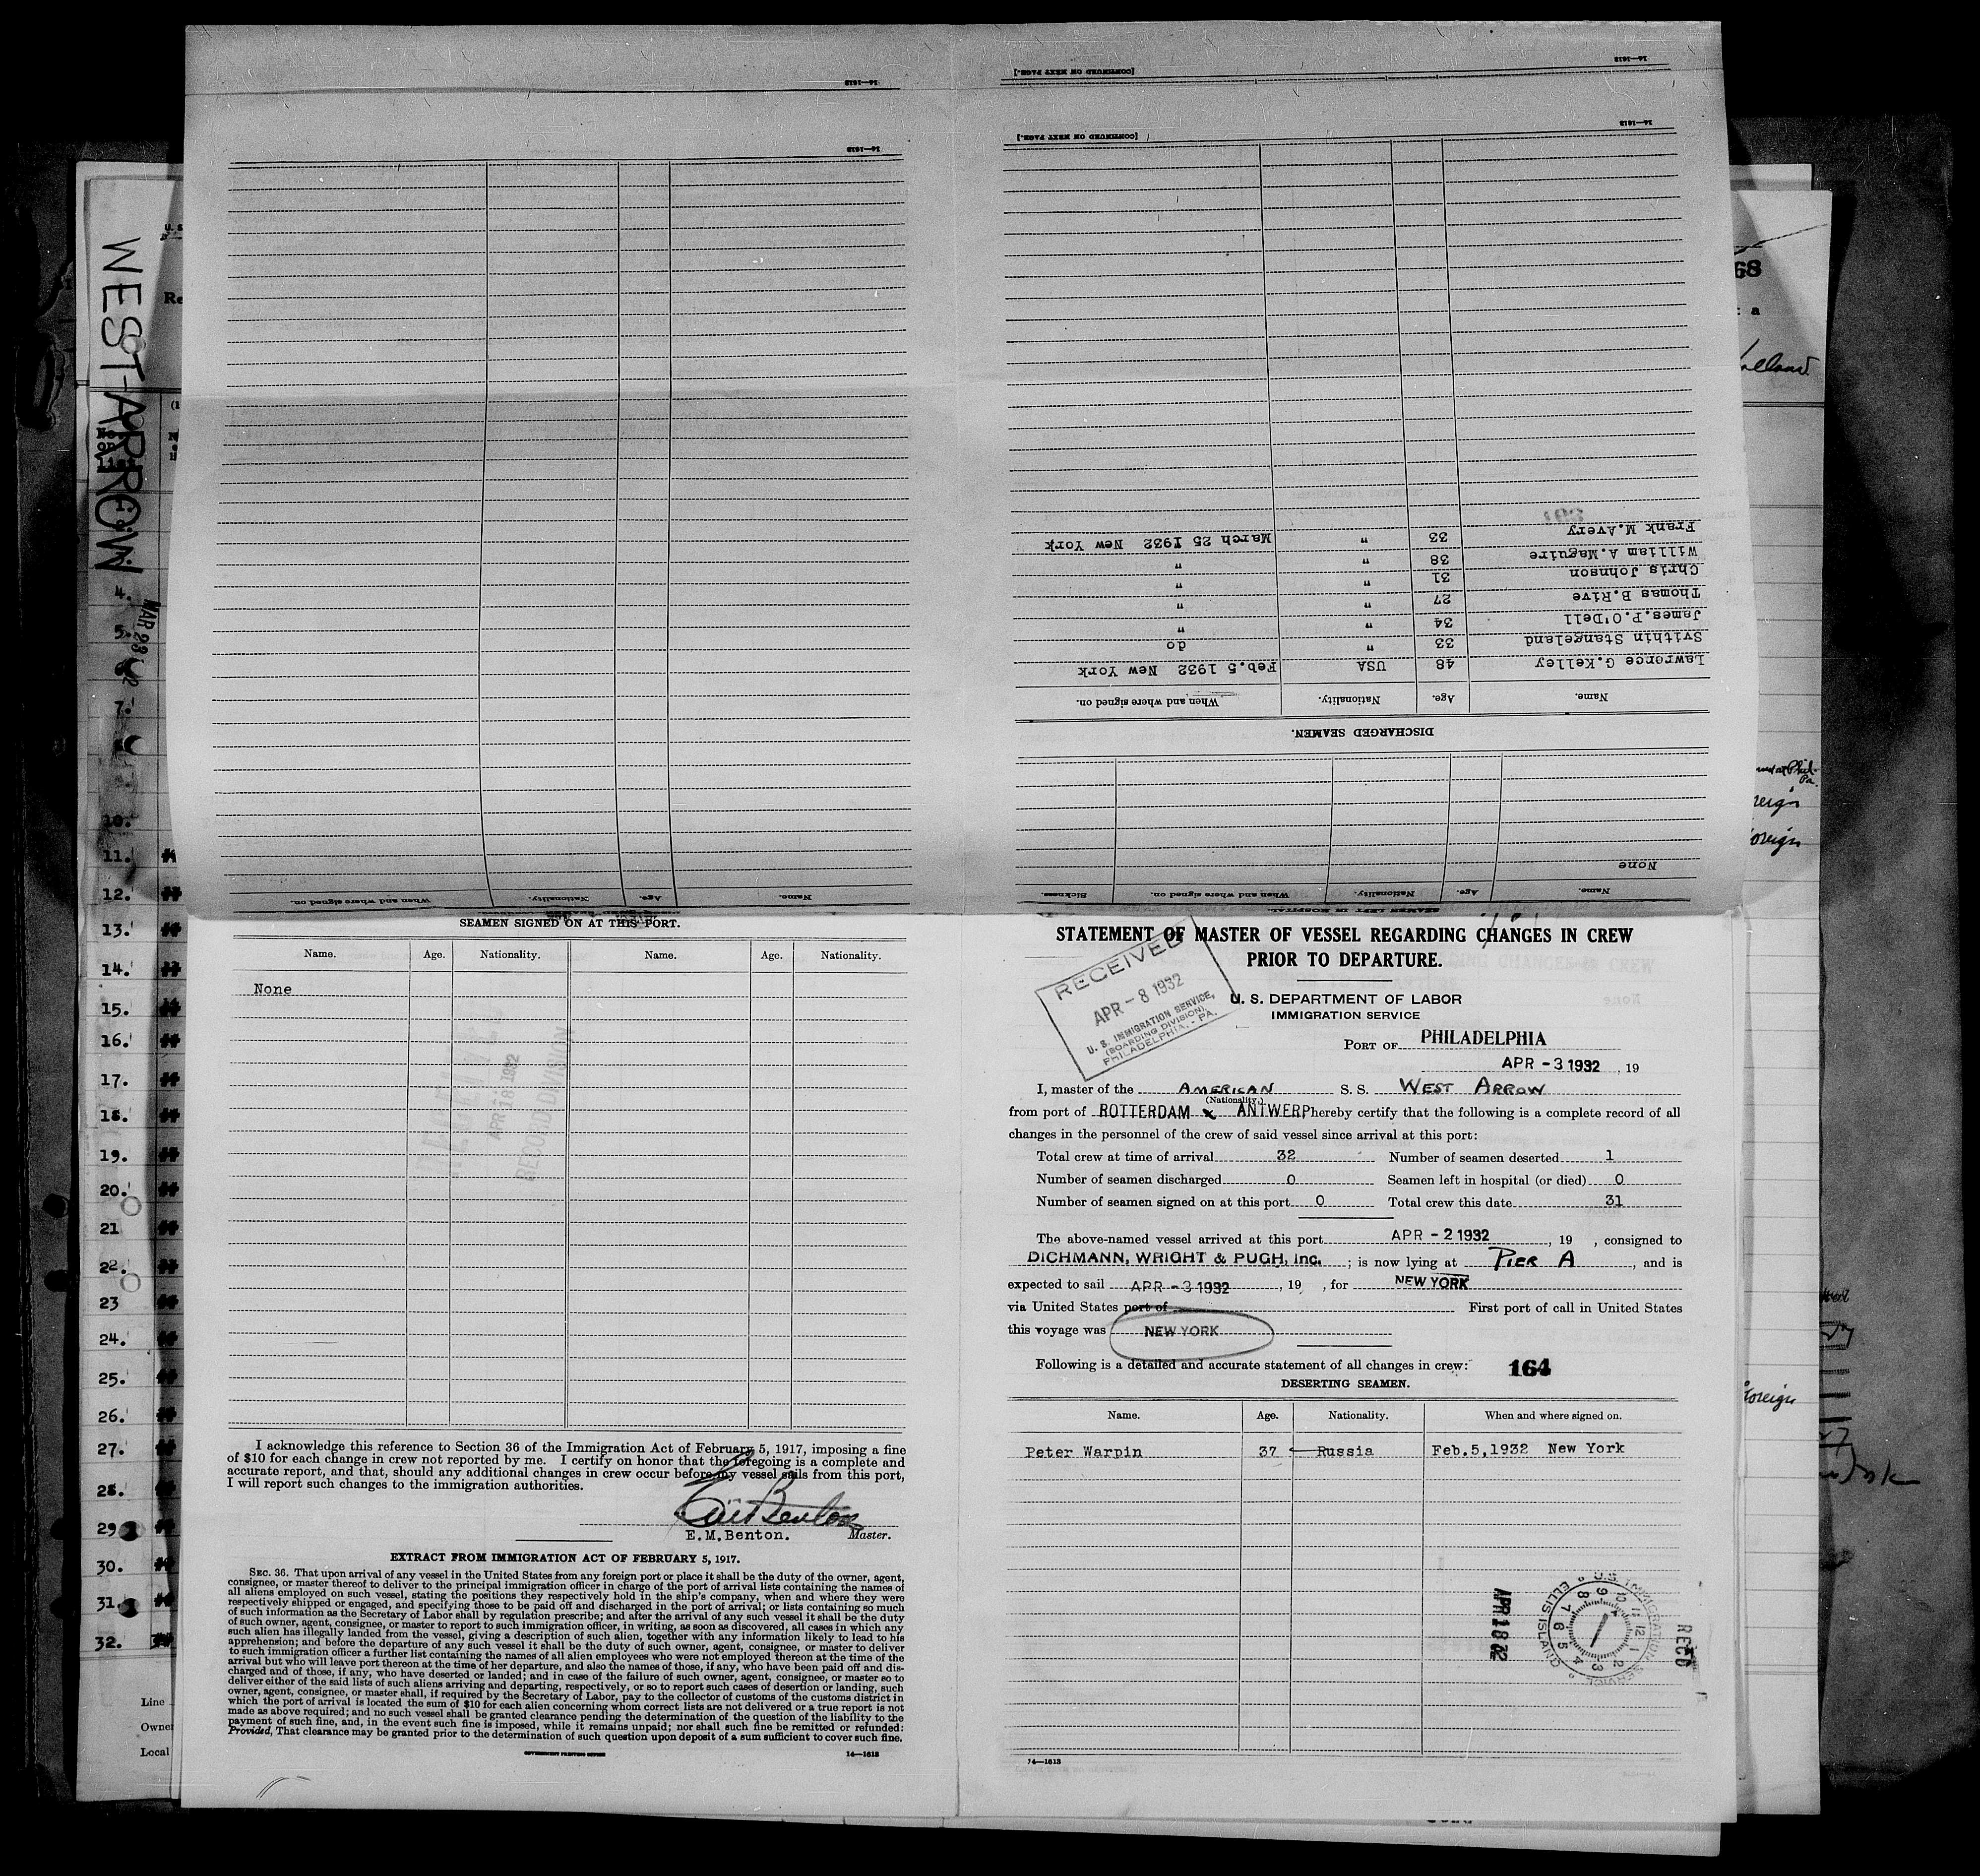 14—1613
[CONTINUED ON NEXT PAGE.]
14—1613
14—1613
[CONTINUED ON NEXT PAGE.]
14—1613
Name.
Age.
Nationality.
When and where signed on.
SEAMEN LEFT IN HOSPITAL.
Name. Age. Nationality. When and where signed on. Sickness.
None
DISCHARGED SEAMEN.
Name. Age. Nationality. When and where signed on.
Lawrence G.Kelley 48 USA Feb.5 1932 New York
Svithin Stangeland 33 " do
James.P.O'Dell 34 " "
Thomas B.Rive 27 " "
Chris Johnson 31 " "
William A.Maguire 38 " "
Frank M.Avery 33 " March 25 1932 New York
WEST ARROW
MAR 23
4.
5.
7.
10.
11.
12.
13.
14.
15.
16.
17.
18.
19.
20.
21
22.
23
24.
25.
26.
27.
28.
29
30.
31.
32.
Line
Owner
Local
68
Holland
foreign
foreign
foreign
SEAMEN SIGNED ON AT THIS PORT.
Name. Age. Nationality. Name. Age. Nationality.
None
RECEIVED
APR 18 1932
RECORD DIVISION
I acknowledge this reference to Section 36 of the Immigration Act of February 5, 1917, imposing a fine
of $10 for each change in crew not reported by me. I certify on honor that the foregoing is a complete and
accurate report, and that, should any additional changes in crew occur before my vessel sails from this port,
I will report such changes to the immigration authorities.
E.M.Benton
E.M.Benton. Master.
EXTRACT FROM IMMIGRATION ACT OF FEBRUARY 5, 1917.
SEC. 36. That upon arrival of any vessel in the United States from any foreign port or place it shall be the duty of the owner, agent,
consignee, or master thereof to deliver to the principal immigration officer in charge of the port of arrival lists containing the names of
all aliens employed on such vessel, stating the positions they respectively hold in the ship's company, when and where they were
respectively shipped or engaged, and specifying those to be paid off and discharged in the port of arrival; or lists containing so much
of such information as the Secretary of Labor shall by regulation prescribe; and after the arrival of any such vessel it shall be the duty
of such owner, agent, consignee, or master to report to such immigration officer, in writing, as soon as discovered, all cases in which any
such alien has illegally landed from the vessel, giving a description of such alien, together with any information likely to lead to his
apprehension; and before the departure of any such vessel it shall be the duty of such owner, agent, consignee, or master to deliver
to such immigration officer a further list containing the names of all alien employees who were not employed thereon at the time of the
arrival but who will leave port thereon at the time of her departure, and also the names of those, if any, who have been paid off and dis-
charged and of those, if any, who have deserted or landed; and in case of the failure of such owner, agent, consignee, or master so to
deliver either of the said lists of such aliens arriving and departing, respectively, or so to report such cases of desertion or landing, such
owner, agent, consignee, or master shall, if required by the Secretary of Labor, pay to the collector of customs of the customs district in
which the port of arrival is located the sum of $10 for each alien concerning whom correct lists are not delivered or a true report is not
made as above required; and no such vessel shall be granted clearance pending the determination of the question of the liability to the
payment of such fine, and, in the event such fine is imposed, while it remains unpaid; nor shall such fine be remitted or refunded:
Provided, That clearance may be granted prior to the determination of such question upon deposit of a sum sufficient to cover such fine.
GOVERNMENT PRINTING OFFICE 14—1613
STATEMENT OF MASTER OF VESSEL REGARDING CHANGES IN CREW
PRIOR TO DEPARTURE.
RECEIVED
APR - 8 1932
U. S. IMMIGRATION SERVICE,
(BOARDING DIVISION)
PHILADELPHIA, - PA.
U. S. DEPARTMENT OF LABOR
IMMIGRATION SERVICE
PORT OF PHILADELPHIA
APR - 3 1932 , 19
I, master of the AMERICAN S. S. WEST ARROW
(Nationality.)
from port of ROTTERDAM & ANTWERP hereby certify that the following is a complete record of all
changes in the personnel of the crew of said vessel since arrival at this port:
Total crew at time of arrival 32 Number of seamen deserted 1
Number of seamen discharged 0 Seamen left in hospital (or died) 0
Number of seamen signed on at this port 0 Total crew this date 31
The above-named vessel arrived at this port APR - 2 1932 , 19 , consigned to
DICHMANN, WRIGHT & PUGH, Inc. ; is now lying at PIER A , and is
expected to sail APR - 3 1932 , 19 , for NEW YORK
via United States port of First port of call in United States
this voyage was NEW YORK
Following is a detailed and accurate statement of all changes in crew: 164
DESERTING SEAMEN.
Name. Age. Nationality. When and where signed on.
Peter Warpin 37 Russia Feb.5,1932 New York
APR 18 32
U.S. IMMIGRATION SERVICE
ELLIS ISLAND
REC'D
14—1613